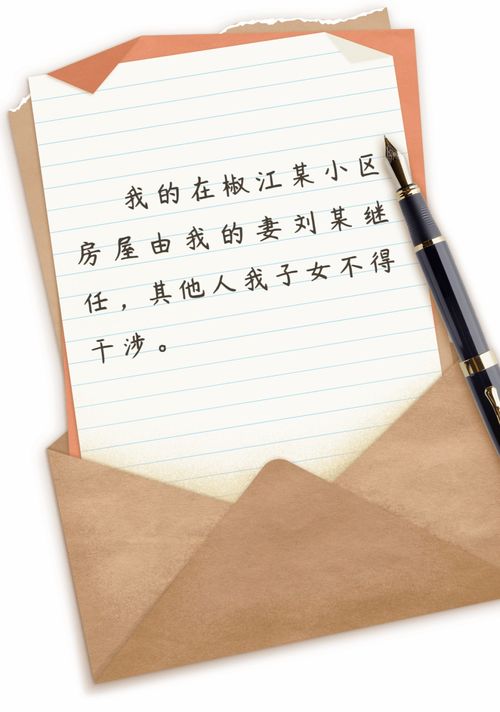 我的在椒江某小区
房屋由我的妻刘某继
任，其他人我子女不得
干涉。